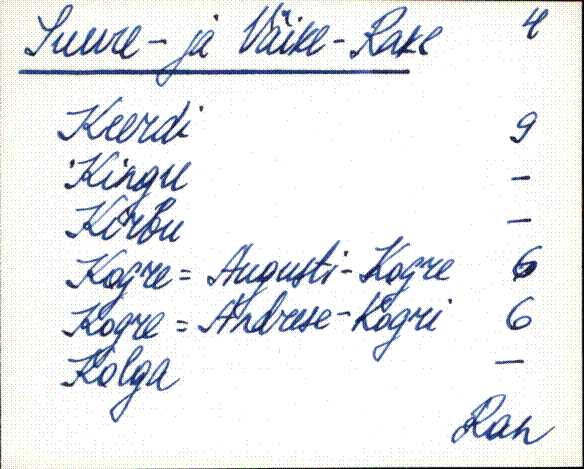 Suure- ja Väike-Rake 4
Keerdi 9
Kingu –
Kirbu –
Kogre = Augusti-Kogre 6
Kogre = Andrese-Kogri 6
Kolga –
Ran